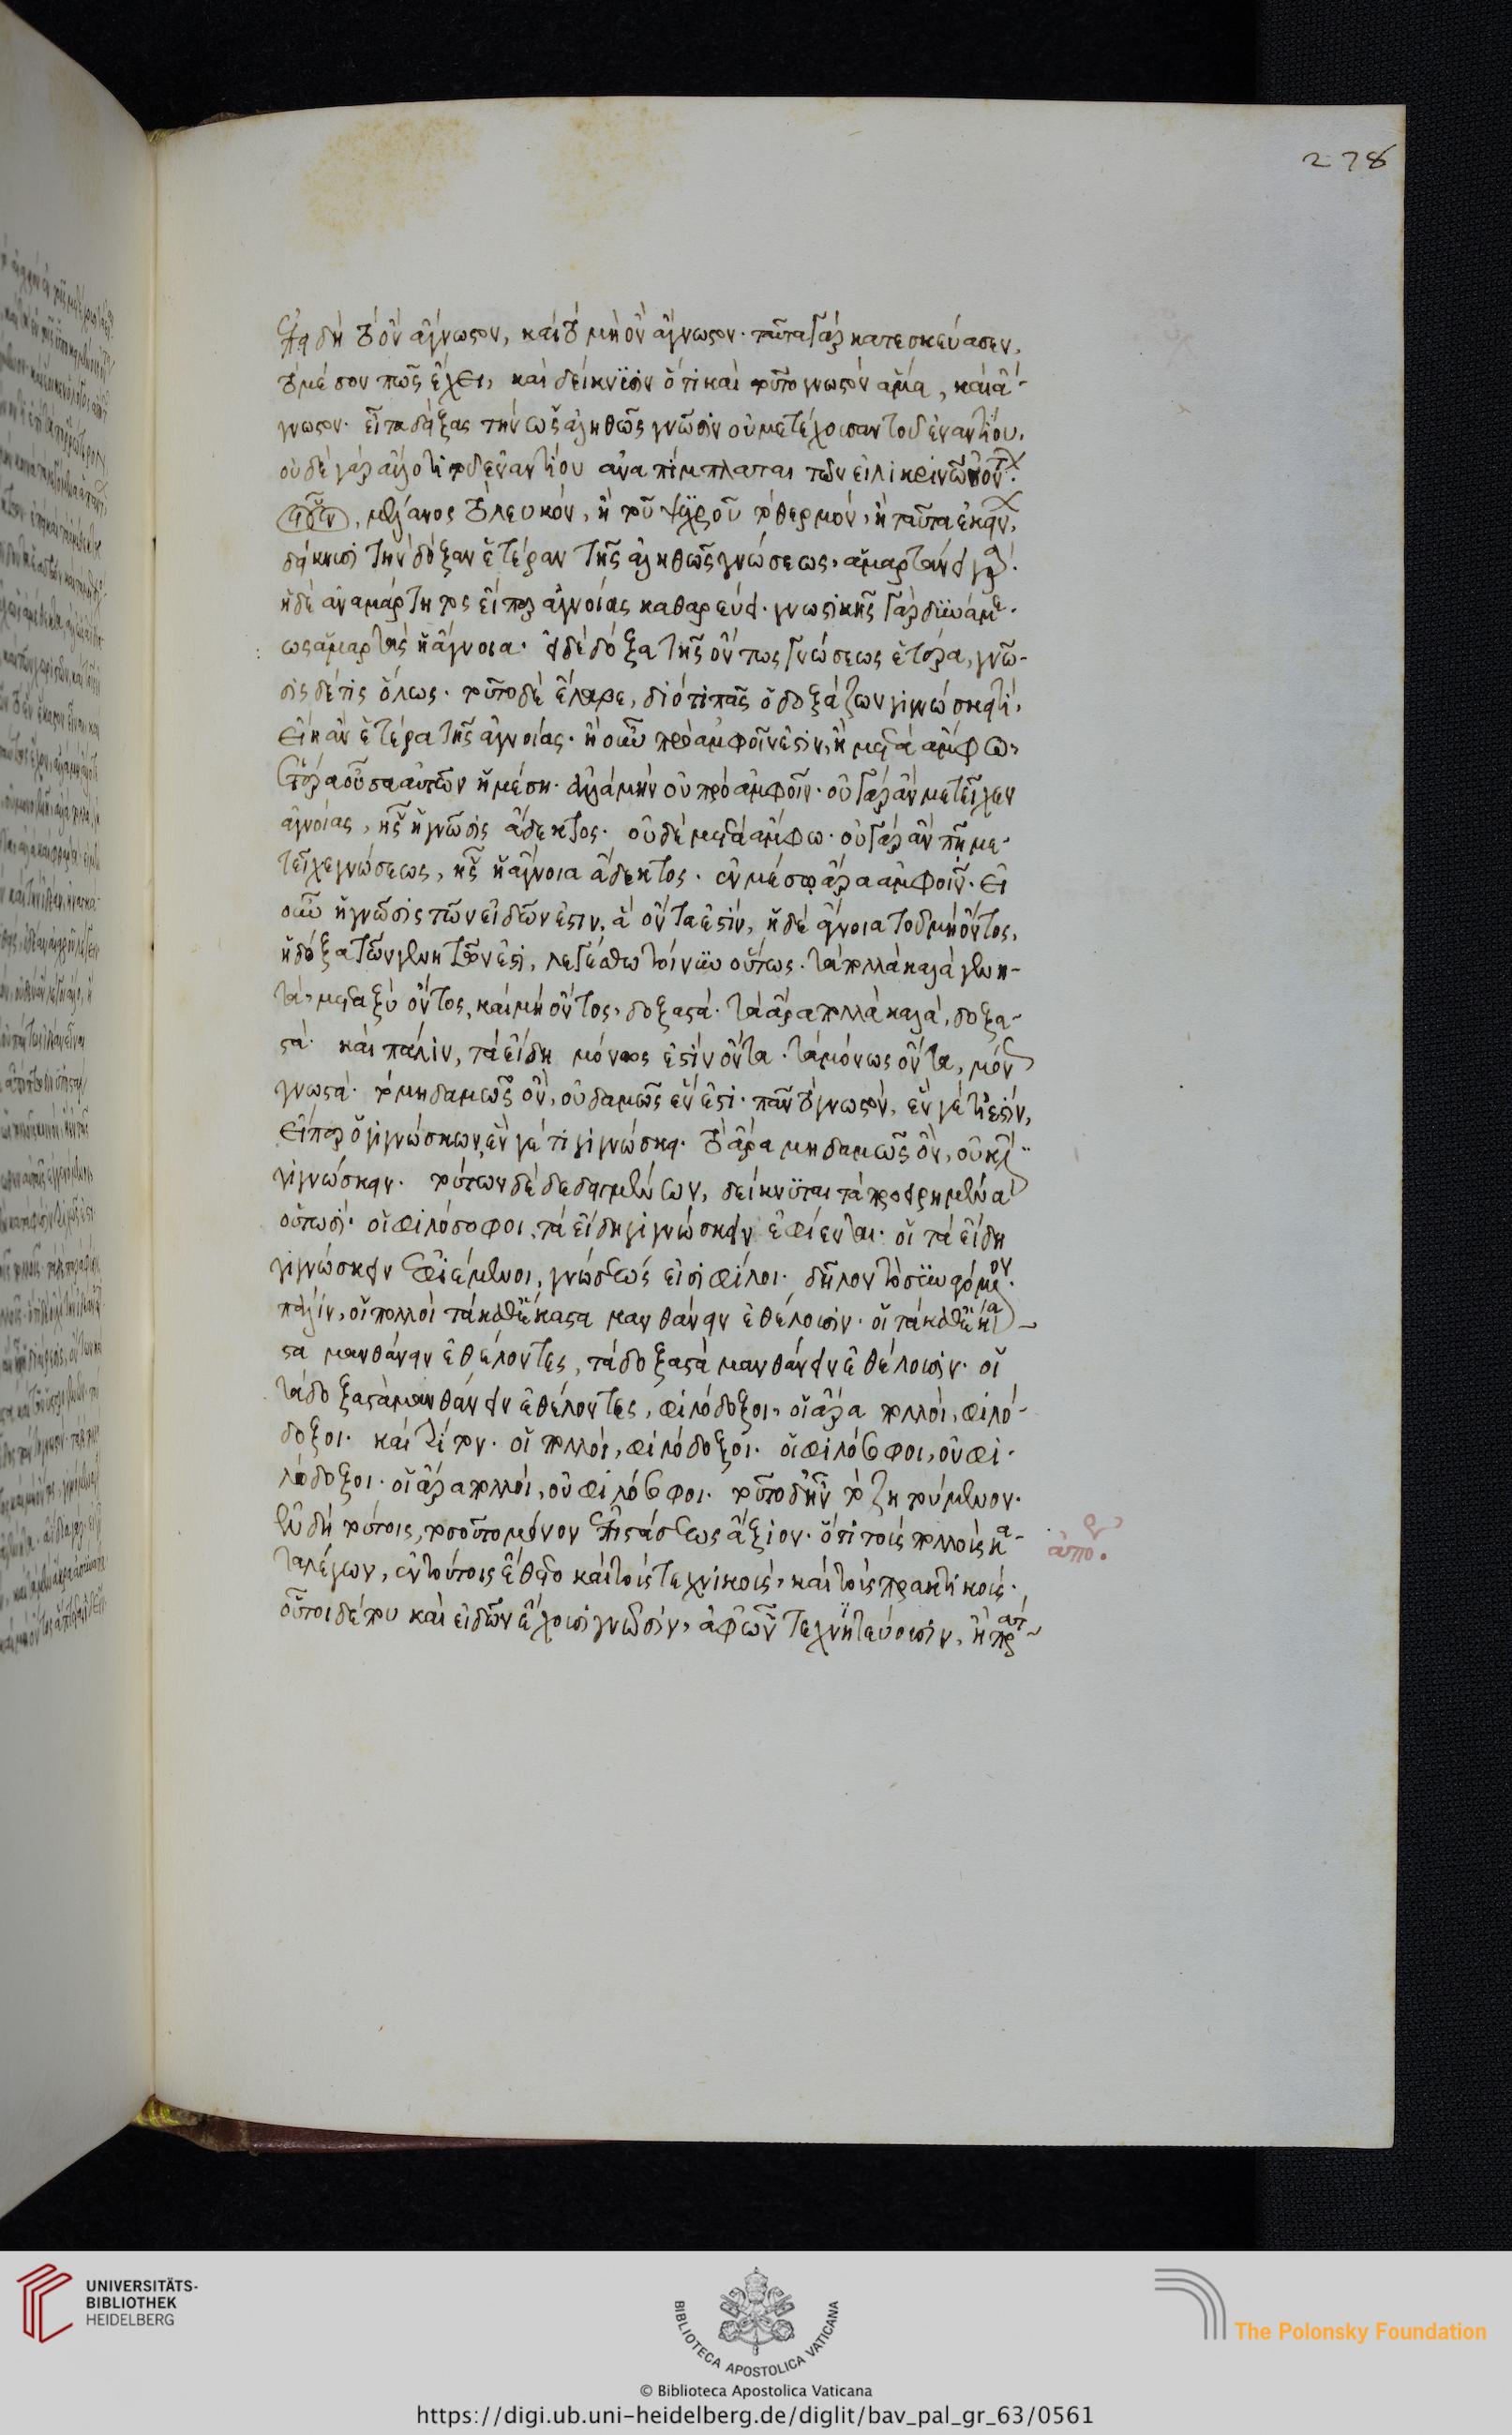 278
ἐπειδὴ τὸ ὂν ἄγνωστον, καὶ τὸ μὴ ὂν ἄγνωστον. ταῦτα γὰρ κατεσκεύασεν,
τὸ μέσον πῶς ἔχει, καὶ δείκνυσιν ὅτι καὶ τοῦτο γνωστὸν ἅμα, καὶ ἄ-
γνωστον. εἶτα δείξας τὴν ὡς ἀληθῶς γνῶσιν οὐ μετέχουσαν τοῦ ἐναντίου,
οὐδὲ γὰρ ἄλλό τι τοῦ ἐναντίου ἀναπίμπλαται τῶν εἰλικρινῶν ὄντων.
εἰδῶν, μέλανος τὸ λευκόν, ἢ τοῦ ψυχροῦ τὸ θερμόν, ἢ ταῦτα ἐκείνων,
δείκνυσι τὴν δόξαν ἑτέραν τῆς ἀληθῶς γνώσεως, ἁμαρτάνει γάρ.
ἡ δὲ ἀναμάρτητος εἴπερ ἀγνοίας καθαρεύει. γνωστικῆς γὰρ δυνάμε-
ως ἁμαρτὰς ἡ ἄγνοια. εἰ δὲ δόξα τῆς ὄντως γνώσεως ἑτέρα, γνῶ-
σις δέ τις ὅλως. τοῦτο δὲ ἔλαβε, διότι πᾶς ὁ δοξάζων γιγνώσκει τί,
εἴη ἂν ἑτέρα τῆς ἀγνοίας. ἢ οὖν πρὸ ἀμφοῖν ἐστιν, ἢ μετὰ ἄμφω,
ἑτέρα οὖσα αὐτῶν ἢ μέση. ἀλλὰ μὴν οὐ πρὸ ἀμφοῖν. οὐ γὰρ ἂν μετεῖχεν
ἀγνοίας, ἧς ἡ γνῶσις ἄδεκτος. οὐδὲ μετὰ ἄμφω. οὐ γὰρ ἂν πῃ με-
τεῖχε γνώσεως, ἧς ἡ ἄγνοια ἄδεκτος. ἐν μέσῳ ἄρα ἀμφοῖν. εἰ
οὖν ἡ γνῶσις τῶν εἰδῶν ἐστιν, ἃ ὄντα ἐστίν, ἡ δὲ ἄγνοια τοῦ μὴ ὄντος,
ἡ δόξα τῶν γενητῶν ἐστι, λεγέσθω τοίνυν οὕτως. τὰ πολλὰ καλὰ γενη-
τὰ, μεταξὺ ὄντος, καὶ μὴ ὄντος, δοξαστά. τὰ ἄρα πολλὰ καλά, δοξα-
στά. καὶ πάλιν, τὰ εἴδη μόνως ἐστὶν ὄντα. τὰ μόνως ὄντα, μόνως
γνωστά. τὸ μηδαμῶς ὄν, οὐδαμῶς ἕν ἐστι. πᾶν τὸ γνωστόν, ἕν γέ τί ἐστιν,
εἴπερ ὁ γιγνώσκων, ἕν γέ τι γιγνώσκει. τὸ ἄρα μηδαμῶς ὄν, οὐκ ἔστι
γιγνώσκειν. τούτων δὲ δεδειγμένων, δείκνυται τὰ προειρημένα
οὕτωσί. οἱ φιλόσοφοι, τὰ εἴδη γιγνώσκειν ἐφίενται. οἱ τὰ εἴδη
γιγνώσκειν ἐφιέμενοι, γνώσεώς εἰσι φίλοι. δῆλον τὸ συναγόμενον.
πάλιν, οἱ πολλοὶ τὰ καθέκαστα μανθάνειν ἐθέλουσιν. οἱ τὰ καθέκα-
στα μανθάνειν ἐθέλοντες, τὰ δοξαστὰ μανθάνειν ἐθέλουσιν. οἱ
τὰ δοξαστὰ μανθάνειν ἐθέλοντες, φιλόδοξοι, οἱ ἄρα πολλοί, φιλό-
δοξοι. καὶ λοιπόν. οἱ πολλοί, φιλόδοξοι. οἱ φιλόσοφοι, οὐ φι-
λόδοξοι. οἱ ἄρα πολλοί, οὐ φιλόσοφοι. τοῦτο δ' ἦν τὸ ζητούμενον.
ἐν δὴ τούτοις, τοσοῦτο μόνον ἐπιστάσεως ἄξιον. ὅτι τοῖς πολλοῖς κα-
ταλέγων, ἐν τούτοις ἔθετο καὶ τοῖς τεχνικοῖς, καὶ τοῖς πρακτικοῖς.
οὗτοι δέ που καὶ εἰδῶν ἔχουσι γνῶσιν, ἀφ' ὧν τεχνιτεύουσιν, ἢ πράτ-
ἀπο.
UNIVERSITÄTS-
BIBLIOTHEK
HEIDELBERG
BIBLIOTECA APOSTOLICA VATICANA
The Polonsky Foundation
© Biblioteca Apostolica Vaticana
https://digi.ub.uni-heidelberg.de/diglit/bav_pal_gr_63/0561